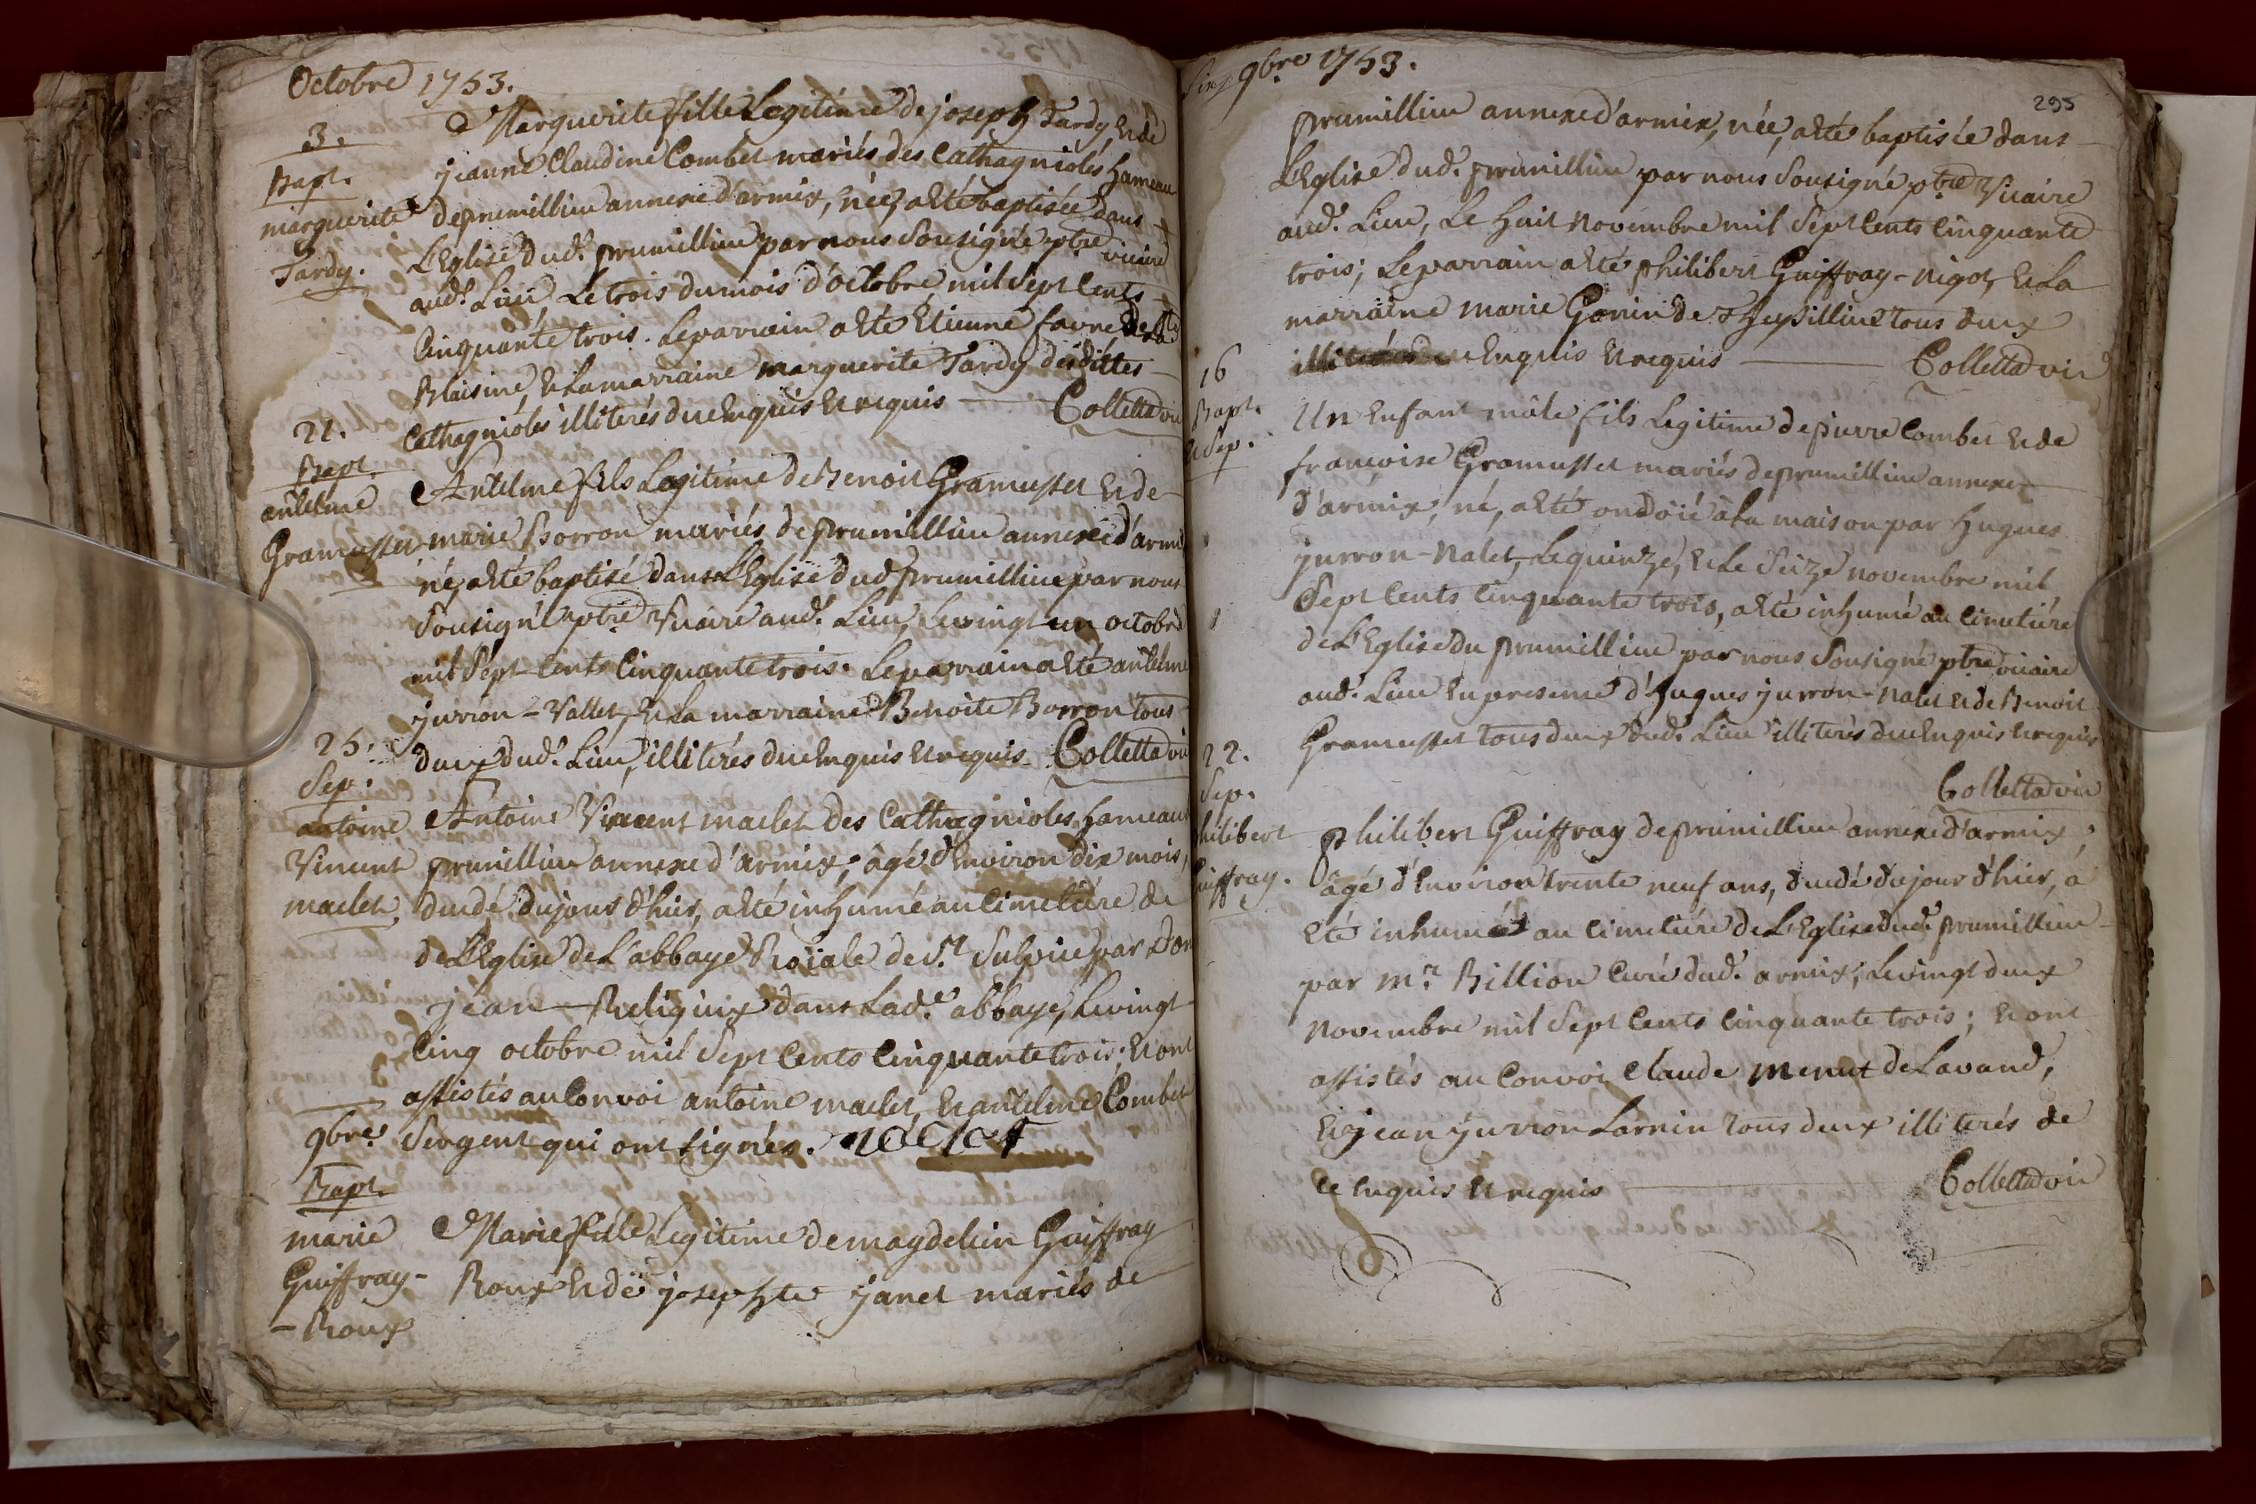 Octobre 1753.
3.
Bapt.
marguerite
Tardy.
Marguerite fille Legitime de joseph Tardy, et de
jeanne Claudine Combet mariés des Cathagnioles hameau
de prumillieu annexe d'armix, née, a eté baptisée dans
L'Eglise dud. prumillieu par nous Sousigné ptre vicaire
aud. Lieu Le trois du mois d'octobre mil Sept Cents
Cinquante trois. Le parrain a eté Etienne favre de la
Blaisine, et La marraine marguerite Tardy desdittes
Cathagnioles illiterés de ce enquis et requis Colletta vic
21.
Bapt.
antelme
Gramusset
Antelme fils Legitime de Benoit Gramusset et de
marie Borron mariés de prumillieu annexe d'armix
né, a eté baptisé dans L'Eglise dud prumillieu par nous
Sousigné ptre Vicaire aud. Lieu, Le vingt un octobre
mil Sept Cents Cinquante trois. Le parrain a eté antelme
jurron-Vallet, et La marraine Benoite Borron tous
deux dud. Lieu, illiterés de ce enquis et requis Colletta vic
25.
Sep.
antoine
Vincent
maclet
Antoine Vincent maclet des Cathagnioles, hameau
prumillieu annexe d'armix, âgé d'environ dix mois,
decedé du jour d'hier, a eté inhumé au Cimetiére de
de L'Eglise de L'abbaye Roiale de St. Sulpice par Don
jean Religieux dans Lade. abbaye, Le vingt
Cinq octobre mil Sept Cents Cinquante trois; et ont
assistés au Convoi antoine maclet, et antelme Combet
Sergent qui ont signés. maclet
9bre
Bapt.
marie
Guiffray-
-Roux
Marie fille Legitime de magdelein Guiffray
Roux et de josephte janet mariés de
9bre 1753.
295
prumillieu annexe d'armix, née, a eté baptisée dans
L'Eglise dud. prumillieu par nous Sousigné ptre Vicaire
aud. Lieu, Le huit Novembre mil Sept Cents Cinquante
trois; Le parrain a eté philibert Guiffray-nigot, et La
marraine marie Gonin de Theysillieu tous deux
illiterés de ce Enquis et requis Colletta vic
16
Bapt.
et Sep.
Un Enfant mâle fils Legitime de pierre Combet et de
françoise Gramusset mariés de prumillieu annexe
d'armix, né, a eté ondoié a la maison par hugues
jurron-Nalet, Le quinze, et Le Seize novembre mil
Sept Cents Cinquante trois, a eté inhumé au Cimetiére
de L'Eglise du prumillieu par nous Sousigné ptre vicaire
aud. Lieu en presence d'hugues jurron-Nalet et de Benoit
Gramusset tous deux dud. Lieu illiterés de ce enquis et requis
Colletta vic
22.
Sep.
hilibert
uiffray.
Philibert Guiffray de prumillieu annexe d'armix,
âgé d'environ trente neuf ans, decedé du jour d'hier, a
eté inhumé au Cimetiére de L'Eglise dud. prumillieu
par Mr. Billion Curé dud. armix, Le vingt deux
Novembre mil Sept Cents Cinquante trois; et ont
assistés au Convoi Claude Menut de Lavand,
et jean jurron Larnin tous deux illiterés de
ce enquis et requis Colletta vic